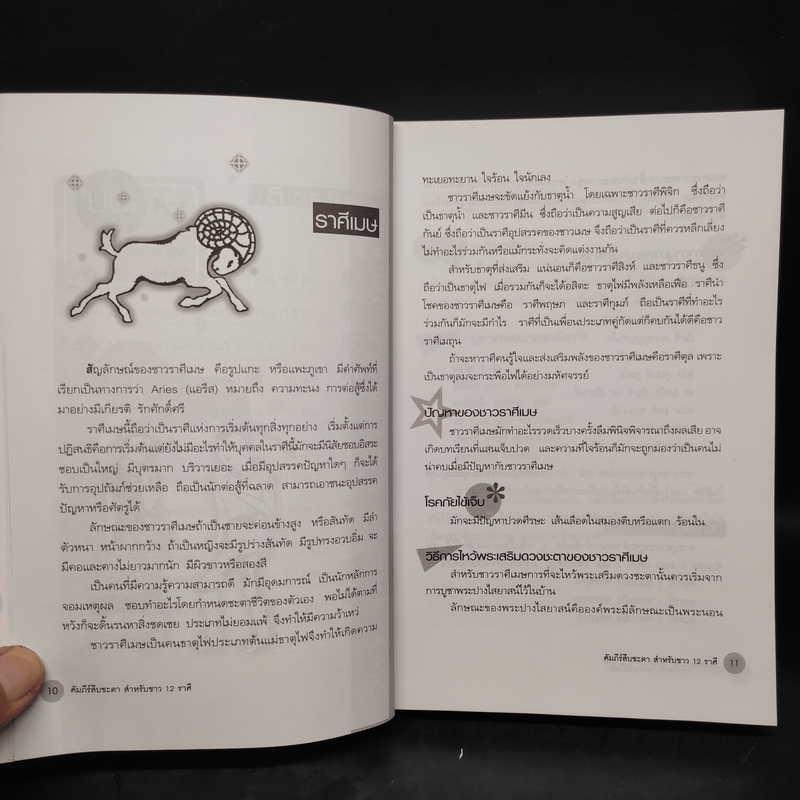 ราศีเมษ
สัญลักษณ์ของชาวราศีเมษ คือรูปแกะ หรือแพะภูเขา มีคำศัพท์ที่
เรียกเป็นทางการว่า Aries (แอรีส) หมายถึง ความทะนง การต่อสู้ซึ่งได้
มาอย่างมีเกียรติ รักศักดิ์ศรี
ราศีเมษนี้ถือว่าเป็นราศีแห่งการเริ่มต้นทุกสิ่งทุกอย่าง เริ่มตั้งแต่การ
ปฏิสนธิคือการเริ่มต้นแต่ยังไม่มีอะไรทำให้บุคคลในราศีนี้มักจะมีนิสัยชอบอิสระ
ชอบเป็นใหญ่ มีบุตรมาก บริวารเยอะ เมื่อมีอุปสรรคปัญหาใดๆ ก็จะได้
รับการอุปถัมภ์ช่วยเหลือ ถือเป็นนักต่อสู้ที่ฉลาด สามารถเอาชนะอุปสรรค
ปัญหาหรือศัตรูได้
ลักษณะของชาวราศีเมษถ้าเป็นชายจะค่อนข้างสูง หรือสันทัด มีลำ
ตัวหนา หน้าผากกว้าง ถ้าเป็นหญิงจะมีรูปร่างสันทัด มีรูปทรงอวบอิ่ม จะ
มีคอและคางไม่ยาวมากนัก มีผิวขาวหรือสองสี
เป็นคนที่มีความรู้ความสามารถดี มักมีอุดมการณ์ เป็นนักหลักการ
จอมเหตุผล ชอบทำอะไรโดยกำหนดชะตาชีวิตของตัวเอง พอไม่ได้ตามที่
หวังก็จะดิ้นรนหาสิ่งชดเชย ประเภทไม่ยอมแพ้ จึงทำให้มีความว้าเหว่
ชาวราศีเมษเป็นคนธาตุไฟประเภทต้นแม่ธาตุไฟจึงทำให้เกิดความ
10 คัมภีร์สืบชะตา สำหรับชาว 12 ราศี
ทะเยอทะยาน ใจร้อน ใจนักเลง
ชาวราศีเมษจะขัดแย้งกับธาตุน้ำ โดยเฉพาะชาวราศีพิจิก ซึ่งถือว่า
เป็นธาตุน้ำ และชาวราศีมีน ซึ่งถือว่าเป็นความสูญเสีย ต่อไปก็คือชาวราศี
กันย์ ซึ่งถือว่าเป็นราศีอุปสรรคของชาวเมษ จึงถือว่าเป็นราศีที่ควรหลีกเลี่ยง
ไม่ทำอะไรร่วมกันหรือแม้กระทั่งจะคิดแต่งงานกัน
สำหรับธาตุที่ส่งเสริม แน่นอนก็คือชาวราศีสิงห์ และชาวราศีธนู ซึ่ง
ถือว่าเป็นธาตุไฟ เมื่อรวมกันก็จะได้อสิตะ ธาตุไฟมีพลังเหลือเฟือ ราศีนำ
โชคของชาวราศีเมษคือ ราศีพฤษภ และราศีกุมภ์ ถือเป็นราศีที่ทำอะไร
ร่วมกันก็มักจะมีกำไร ราศีที่เป็นเพื่อนประเภทคู่กัดแต่ก็คบกันได้ดีคือชาว
ราศีเมถุน
ถ้าจะหาราศีคนรู้ใจและส่งเสริมพลังของชาวราศีเมษคือราศีตุล เพราะ
เป็นธาตุลมจะกระพือไฟได้อย่างมหัศจรรย์
ปัญหาของชาวราศีเมษ
ชาวราศีเมษมักทำอะไรรวดเร็วบางครั้งลืมพินิจพิจารณาถึงผลเสีย อาจ
เกิดบทเรียนที่แสนเจ็บปวด และความที่ใจร้อนก็มักจะถูกมองว่าเป็นคนไม่
น่าคบเมื่อมีปัญหากับชาวราศีเมษ
โรคภัยไข้เจ็บ
มักจะมีปัญหาปวดศีรษะ เส้นเลือดในสมองตีบหรือแตก ร้อนใน
วิธีการไหว้พระเสริมดวงชะตาของชาวราศีเมษ
สำหรับชาวราศีเมษการที่จะไหว้พระเสริมดวงชะตานั้นควรเริ่มจาก
การบูชาพระปางไสยาสน์ไว้ในบ้าน
ลักษณะของพระปางไสยาสน์คือองค์พระมีลักษณะเป็นพระนอน
คัมภีร์สืบชะตา สำหรับชาว 12 ราศี 11